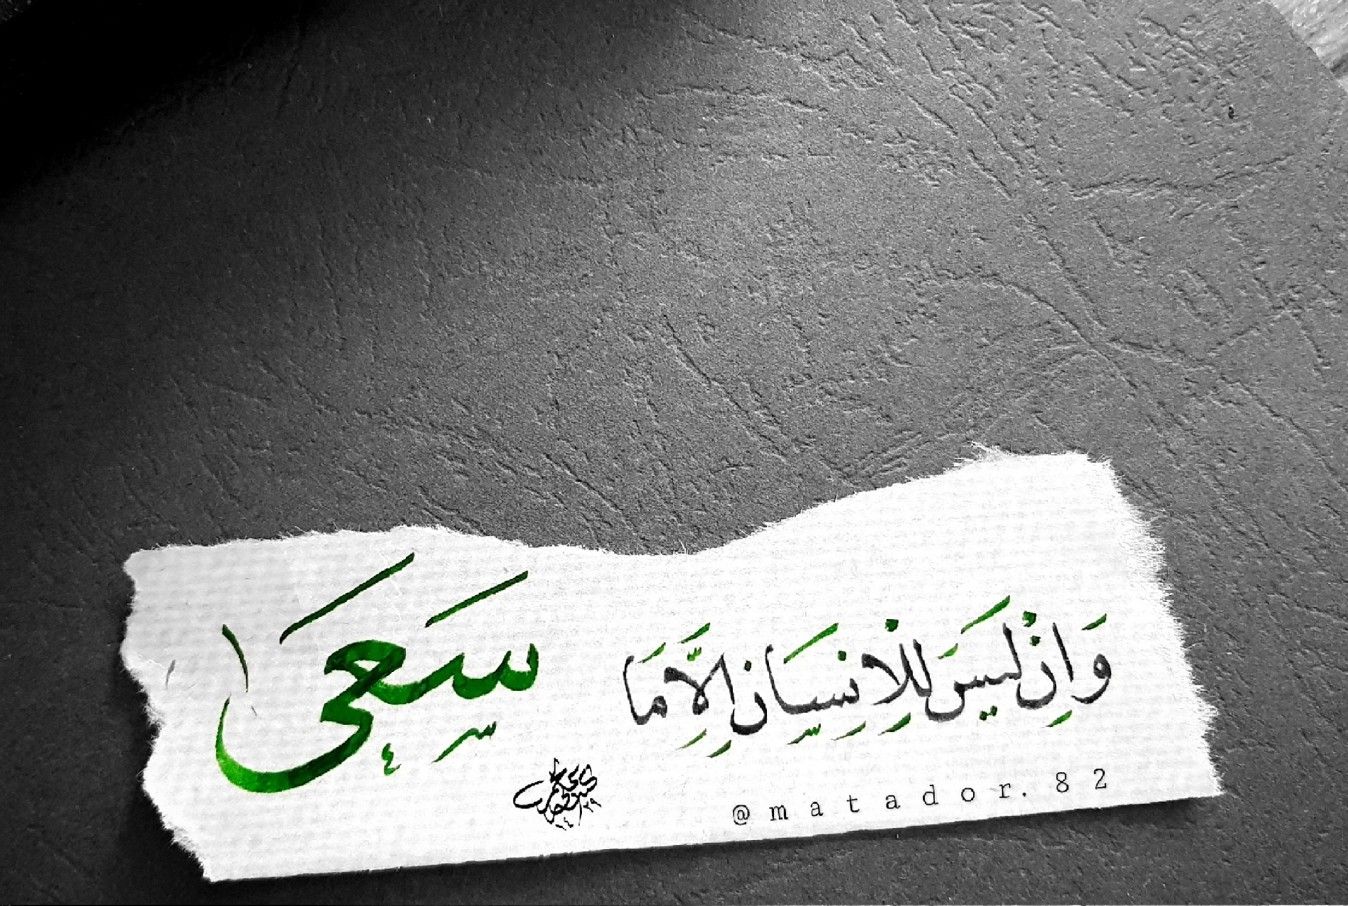 وَاِنْ لَيسَ لِلْاِنسَانِ اِلَّا مَا سَعَى
@matador.82